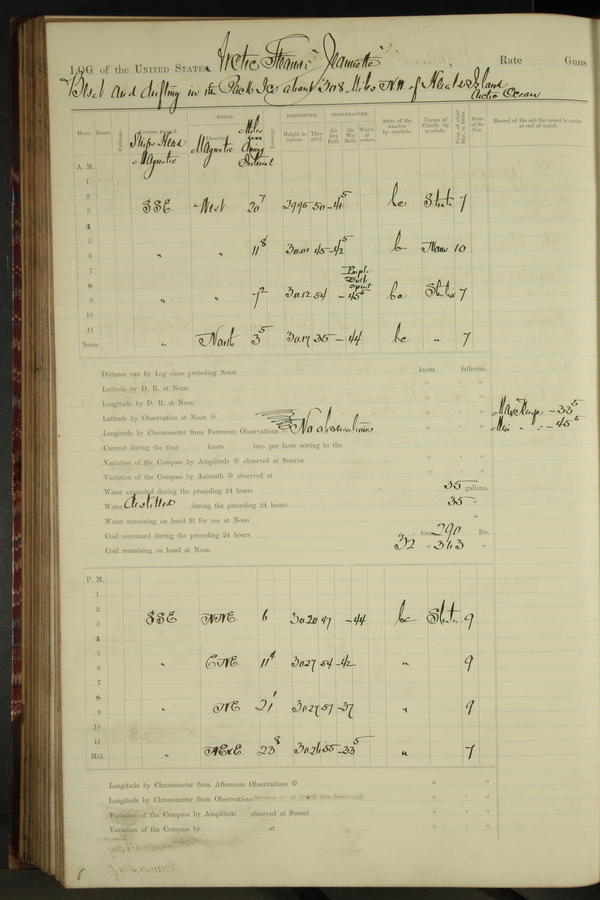 LOG of the UNITED STATES Arctic Steamer Jeannette Rate Guns
Beset and drifting in the Pack Ice about 308 Miles NW of Herald Island
Arctic Ocean
WINDS. BAROMETER. TEMPERATURE.
Hour. Knots. Fathoms. Ships Head Magnetic Magnetic Miles Leeway. Height in inches. Ther. att'd. Air Dry Bulb. Air Wet Bulb. Water at State of the weather by symbols. Forms of Clouds by symbols. State of the Sea. Record of the sail the vessel is under at end of watch.
A. M.
1
2
3 SSE West 20 7 2995 50 -41 5 bc Strat 7
4
5
6 " " 11 8 3001 45 -42 5 b None 10
7
8 Bulb
Spirit
9 " " 7 2 3012 54 -45 5 bc 7
10
11
Noon. " North 3 5 3017 35 -44 bc " 7
Distance run by Log since preceding Noon knots fathoms.
Latitude by D. R. at Noon
Longitude by D. R. at Noon
Latitude by Observation at Noon Max Temp. -33 5
Longitude by Chronometer from Forenoon Observations No observations Min " -45 5
Current during the time knots fms. per hour setting to the
Variation of the Compass by Amplitude observed at Sunrise
Variation of the Compass by Azimuth observed at
Water expended during the preceding 24 hours 35 gallons.
Water distilled during the preceding 24 hours 35 "
Water remaining on hand fit for use at Noon "
Coal consumed during the preceding 24 hours tons 290 lbs.
Coal remaining on hand at Noon 32 " 363 "
P. M.
1
2
3 SSE NNE 6 3020 47 -44 bc Strat. 9
4
5
6 " ENE 11 4 3027 54 -42 " 9
7
8
9 " NE 21 1 3027 57 -37 " 9
10
11
Mid. " NExE 23 8 3026 55 -33 5 " 7
Longitude by Chronometer from Afternoon Observations
Longitude by Chronometer from Observations
Variation of the Compass by Amplitude observed at Sunset
Variation of the Compass by at